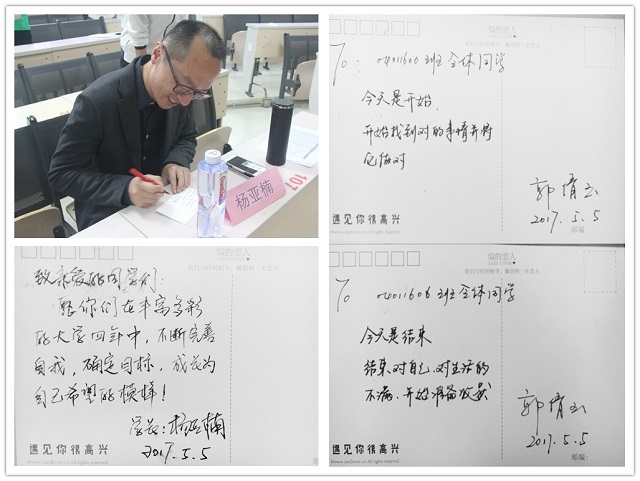 杨亚楠
107
致亲爱的同学们:
愿你们在丰富多彩
的大学四年中,不断完善
自我,确定目标,成长为
自己希望的模样!
学长:杨亚楠
2017.5.5
遇见你很高兴
To: 04011606班全体同学
今天是开始,
开始找到对的事情并将
它做对
郭靖云
2017.5.5
邮编:
遇见你很高兴
To 04011606班全体同学
今天是结束
结束对自己、对生活的
不满,开始准备收获
郭靖云
2017.5.5
邮编:
遇见你很高兴